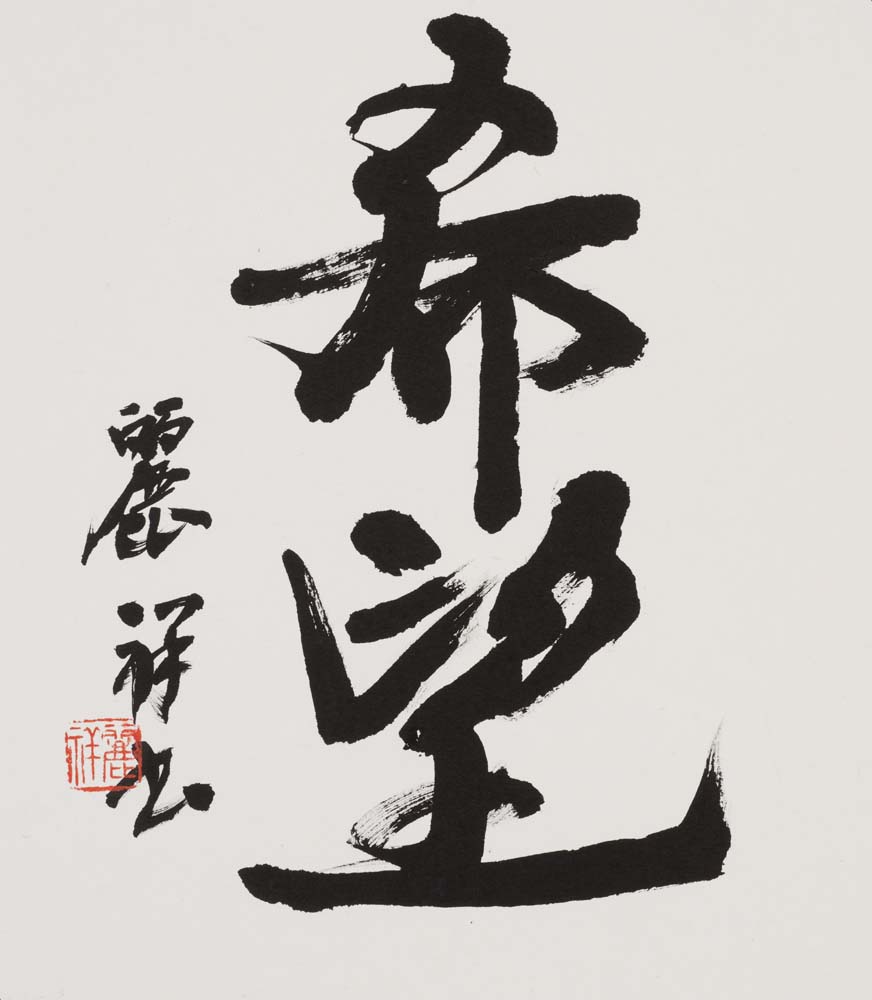 希望
麗祥书
麗祥